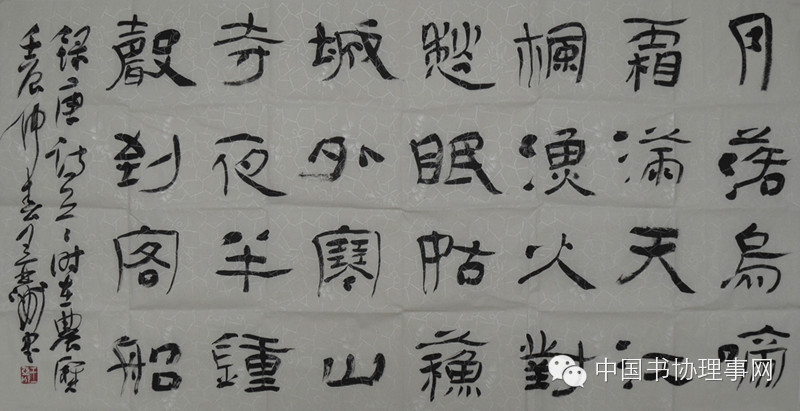 月落烏啼
霜滿天江
楓漁火對
愁眠姑蘇
城外寒山
寺夜半鍾
聲到客船
錄唐詩 時在農曆
壬辰仲春月 書
中国书协理事网